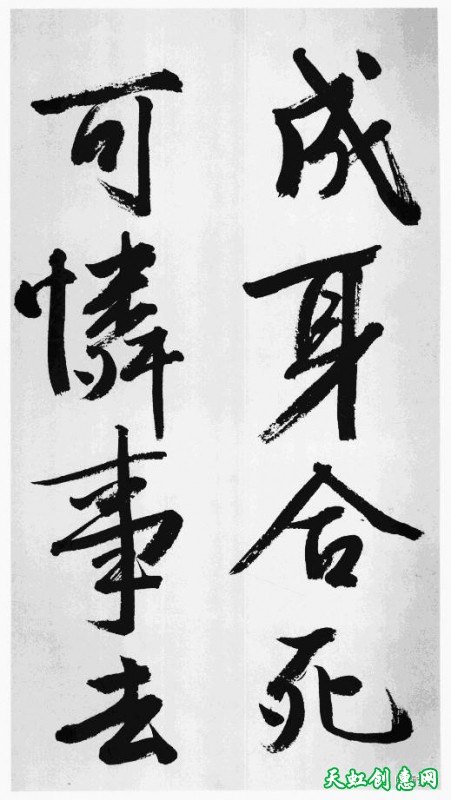 成身合死
可憐事去
天虹创惠网